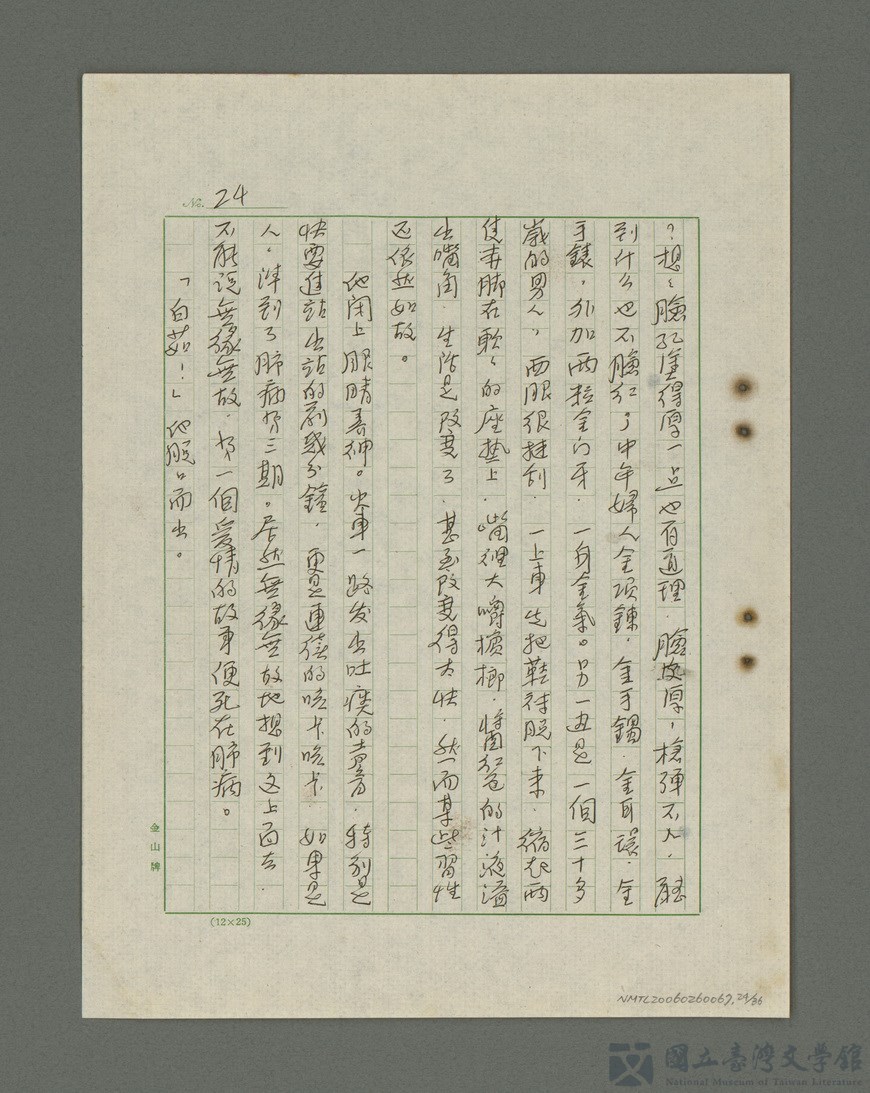 No. 24
？想想臉孔塗得厚一点也有道理，臉皮厚，槍彈不入，
到什么也不臉紅；中年婦人金項鍊，金手鐲，金耳環，金
手錶，外加兩粒金门牙，一身金氣。另一边是一個三十多
歲的男人，兩眼很，一上車先把鞋得脫下来，縮起兩
隻赤脚在軟軟的座墊上，嘴裡大嚼檳榔，醬紅色的汁液溢
出嘴角，生活是改变了，甚至改变得太快，然而某些習性
还依然如故。
他闭上眼睛養神。火車一路发出吐痰的声音，特别是
快要進站出站的前幾分鐘，更是連續的咯卡咯卡，如果是
人，準到了肺病第三期。居然無緣無故地想到这上面去，
不能说無緣無故，有一個爱情的故事便死在肺病。
「白茹！」他脫口而出。
金山牌
(12×25)
NMTL20060260067, 24/36
國立臺灣文學館
National Museum of Taiwan Literature